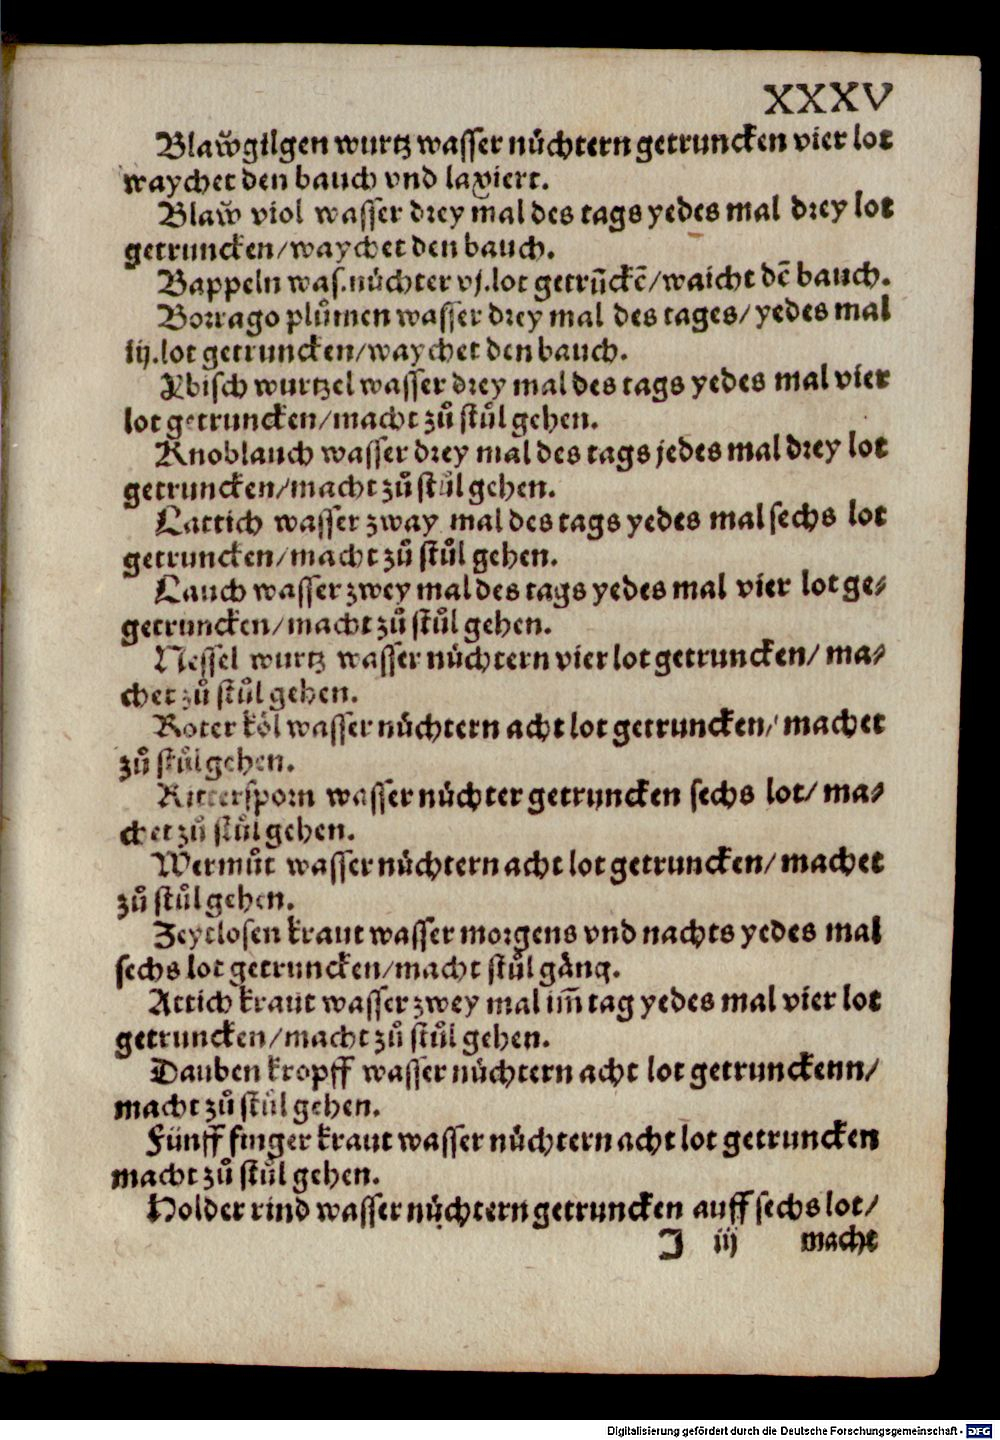 XXXV
Blaw̃gilgen wurtz wasser nůchtern getruncken vier lot
waychet den bauch vnd laxiert.
Blaw̃ viol wasser drey mal des tags yedes mal drey lot
getruncken/waychet den bauch.
Bappeln was.nůchter vj.lot getrũckẽ/waicht dẽ bauch.
Borrago plůmen wasser drey mal des tages/ yedes mal
iij.lot getruncken/waychet den bauch.
Ybisch wurtzel wasser drey mal des tags yedes mal vier
lot getruncken/macht zů stůl gehen.
Knoblauch wasser drey mal des tags jedes mal drey lot
getruncken/macht zů stůl gehen.
Lattich wasser zway mal des tags yedes mal sechs lot
getruncken/macht zů stůl gehen.
Lauch wasser zwey mal des tags yedes mal vier lot ge⸗
getruncken/macht zů stůl gehen.
Nessel wurtz wasser nůchtern vier lot getruncken/ ma⸗
chet zů stůl gehen.
Roter köl wasser nůchtern acht lot getruncken/ machet
zů stůl gehen.
Rittersporn wasser nůchter getruncken sechs lot/ ma⸗
chet zů stůl gehen.
Wermůt wasser nůchtern acht lot getruncken/ machet
zů stůl gehen.
Zeytlosen kraut wasser morgens vnd nachts yedes mal
sechs lot getruncken/macht stůl gång.
Attich kraut wasser zwey mal im̃ tag yedes mal vier lot
getruncken/macht zů stůl gehen.
Dauben kropff wasser nůchtern acht lot getrunckenn/
macht zů stůl gehen.
Fünff finger kraut wasser nůchtern acht lot getruncken
macht zů stůl gehen.
Holder rind wasser nůchtern getruncken auff sechs lot/
J iij macht
Digitalisierung gefördert durch die Deutsche Forschungsgemeinschaft - DFG